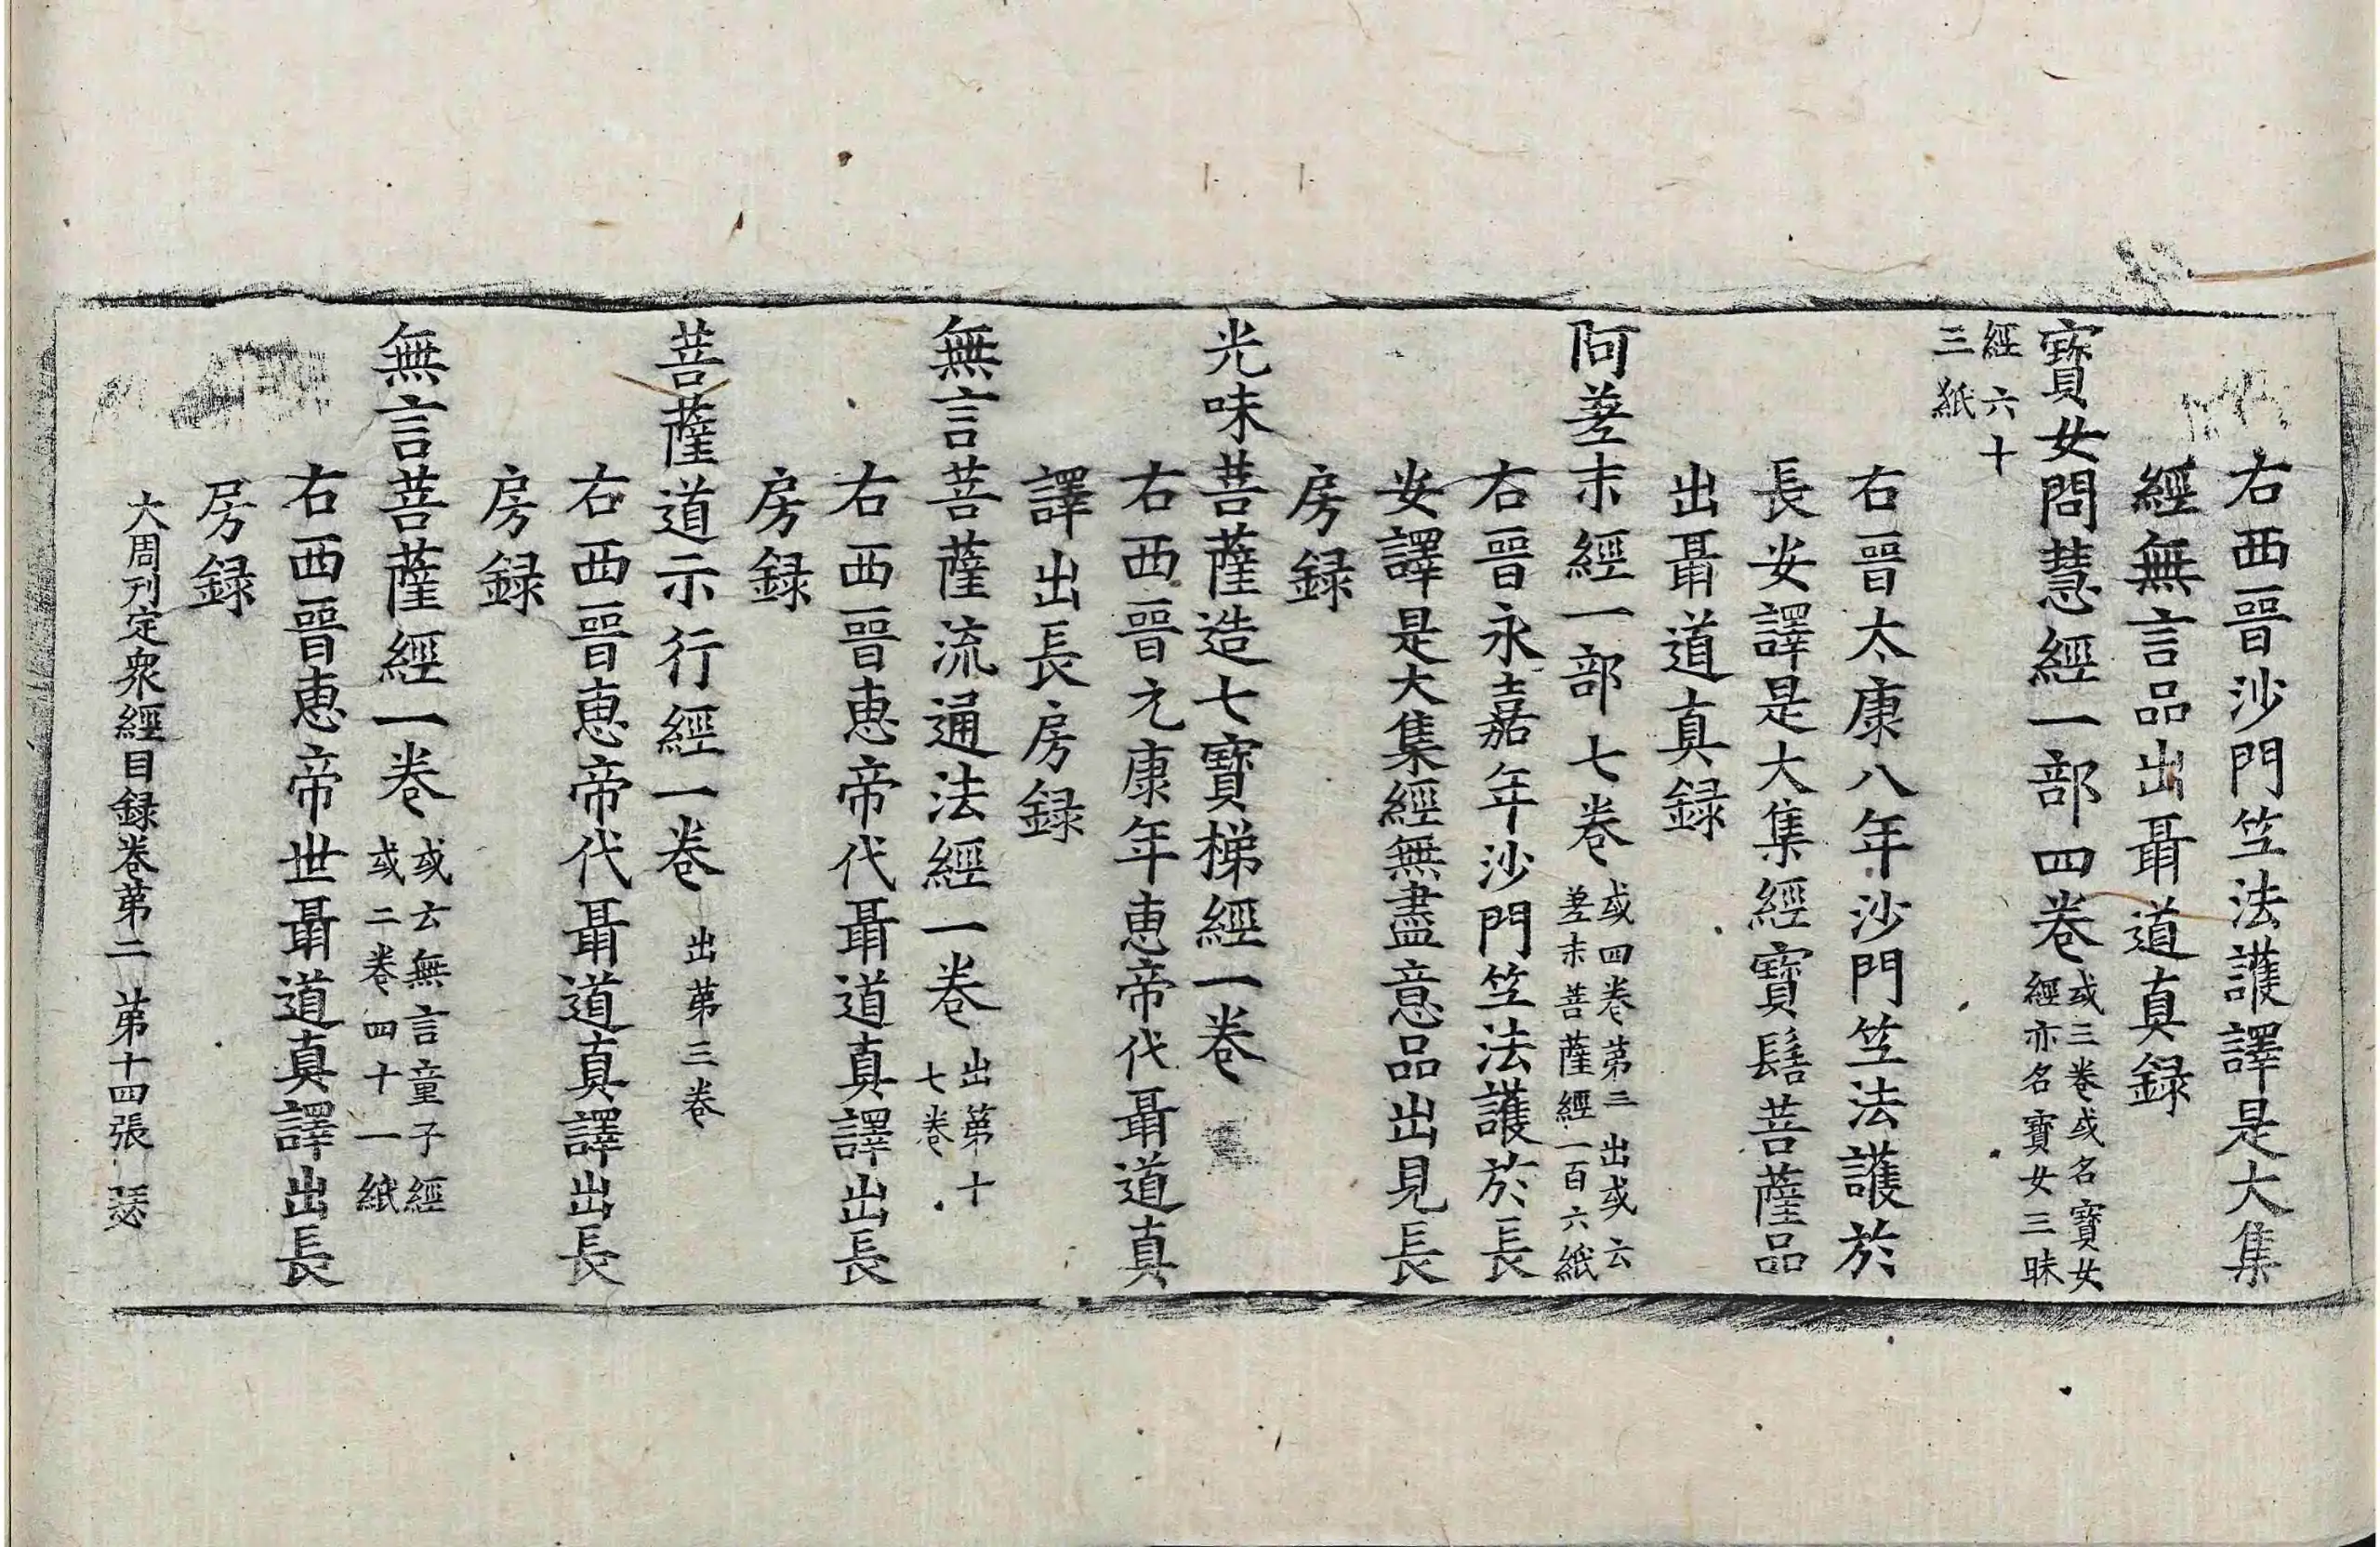 右西晉沙門竺法護譯是大集
經無言品出聶道真録
寶女問慧經一部四卷
或三卷或名寶女
經亦名寶女三昧
經六十
三紙
右晉太康八年沙門竺法護於
長安譯是大集經寶髻菩薩品
出聶道真録
阿差末經一部七卷
或四卷第二出或云
差末菩薩經一百六紙
右晉永嘉年沙門竺法護於長
安譯是大集經無盡意品出見長
房録
光味菩薩造七寶梯經一卷
右西晉元康年惠帝代聶道真
譯出長房録
無言菩薩流通法經一卷
出第十
七卷
右西晉惠帝代聶道真譯出長
房録
菩薩道示行經一卷
出第三卷
右西晉惠帝代聶道真譯出長
房録
無言菩薩經一卷
或云無言童子經
或二卷四十一紙
右西晉惠帝世聶道真譯出長
房録
大周刊定衆經目録卷第二 第十四張 瑟